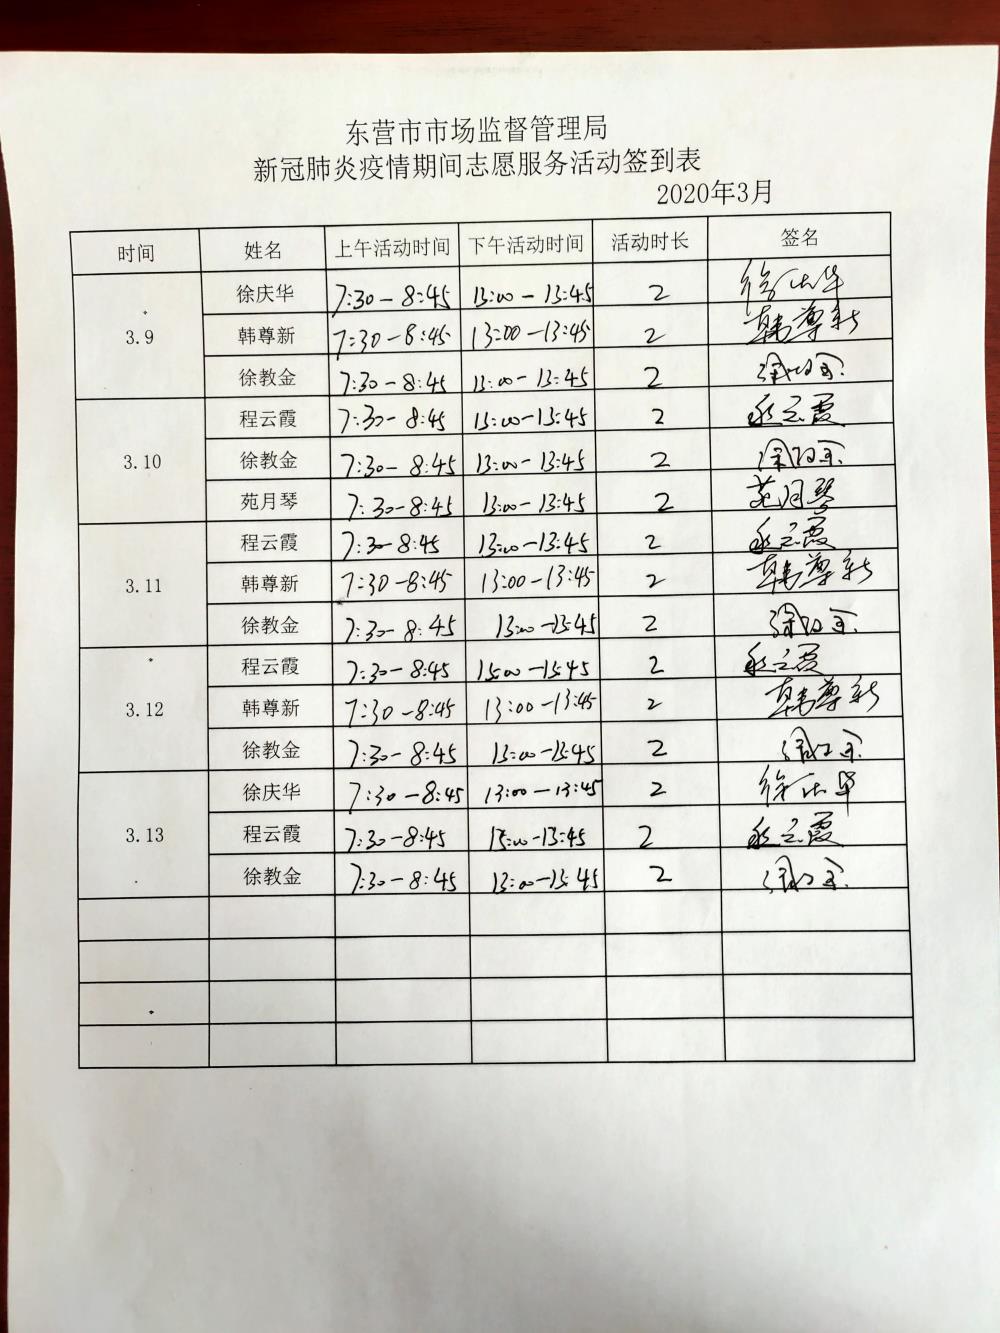 东营市市场监督管理局
新冠肺炎疫情期间志愿服务活动签到表
2020年3月
时间 姓名 上午活动时间 下午活动时间 活动时长 签名
3.9 徐庆华 7:30-8:45 13:00-13:45 2 徐庆华
韩尊新 7:30-8:45 13:00-13:45 2 韩尊新
徐教金 7:30-8:45 13:00-13:45 2 徐教金
3.10 程云霞 7:30-8:45 13:00-13:45 2 程云霞
徐教金 7:30-8:45 13:00-13:45 2 徐教金
苑月琴 7:30-8:45 13:00-13:45 2 苑月琴
3.11 程云霞 7:30-8:45 13:00-13:45 2 程云霞
韩尊新 7:30-8:45 13:00-13:45 2 韩尊新
徐教金 7:30-8:45 13:00-13:45 2 徐教金
3.12 程云霞 7:30-8:45 13:00-13:45 2 程云霞
韩尊新 7:30-8:45 13:00-13:45 2 韩尊新
徐教金 7:30-8:45 13:00-13:45 2 徐教金
3.13 徐庆华 7:30-8:45 13:00-13:45 2 徐庆华
程云霞 7:30-8:45 13:00-13:45 2 程云霞
徐教金 7:30-8:45 13:00-13:45 2 徐教金